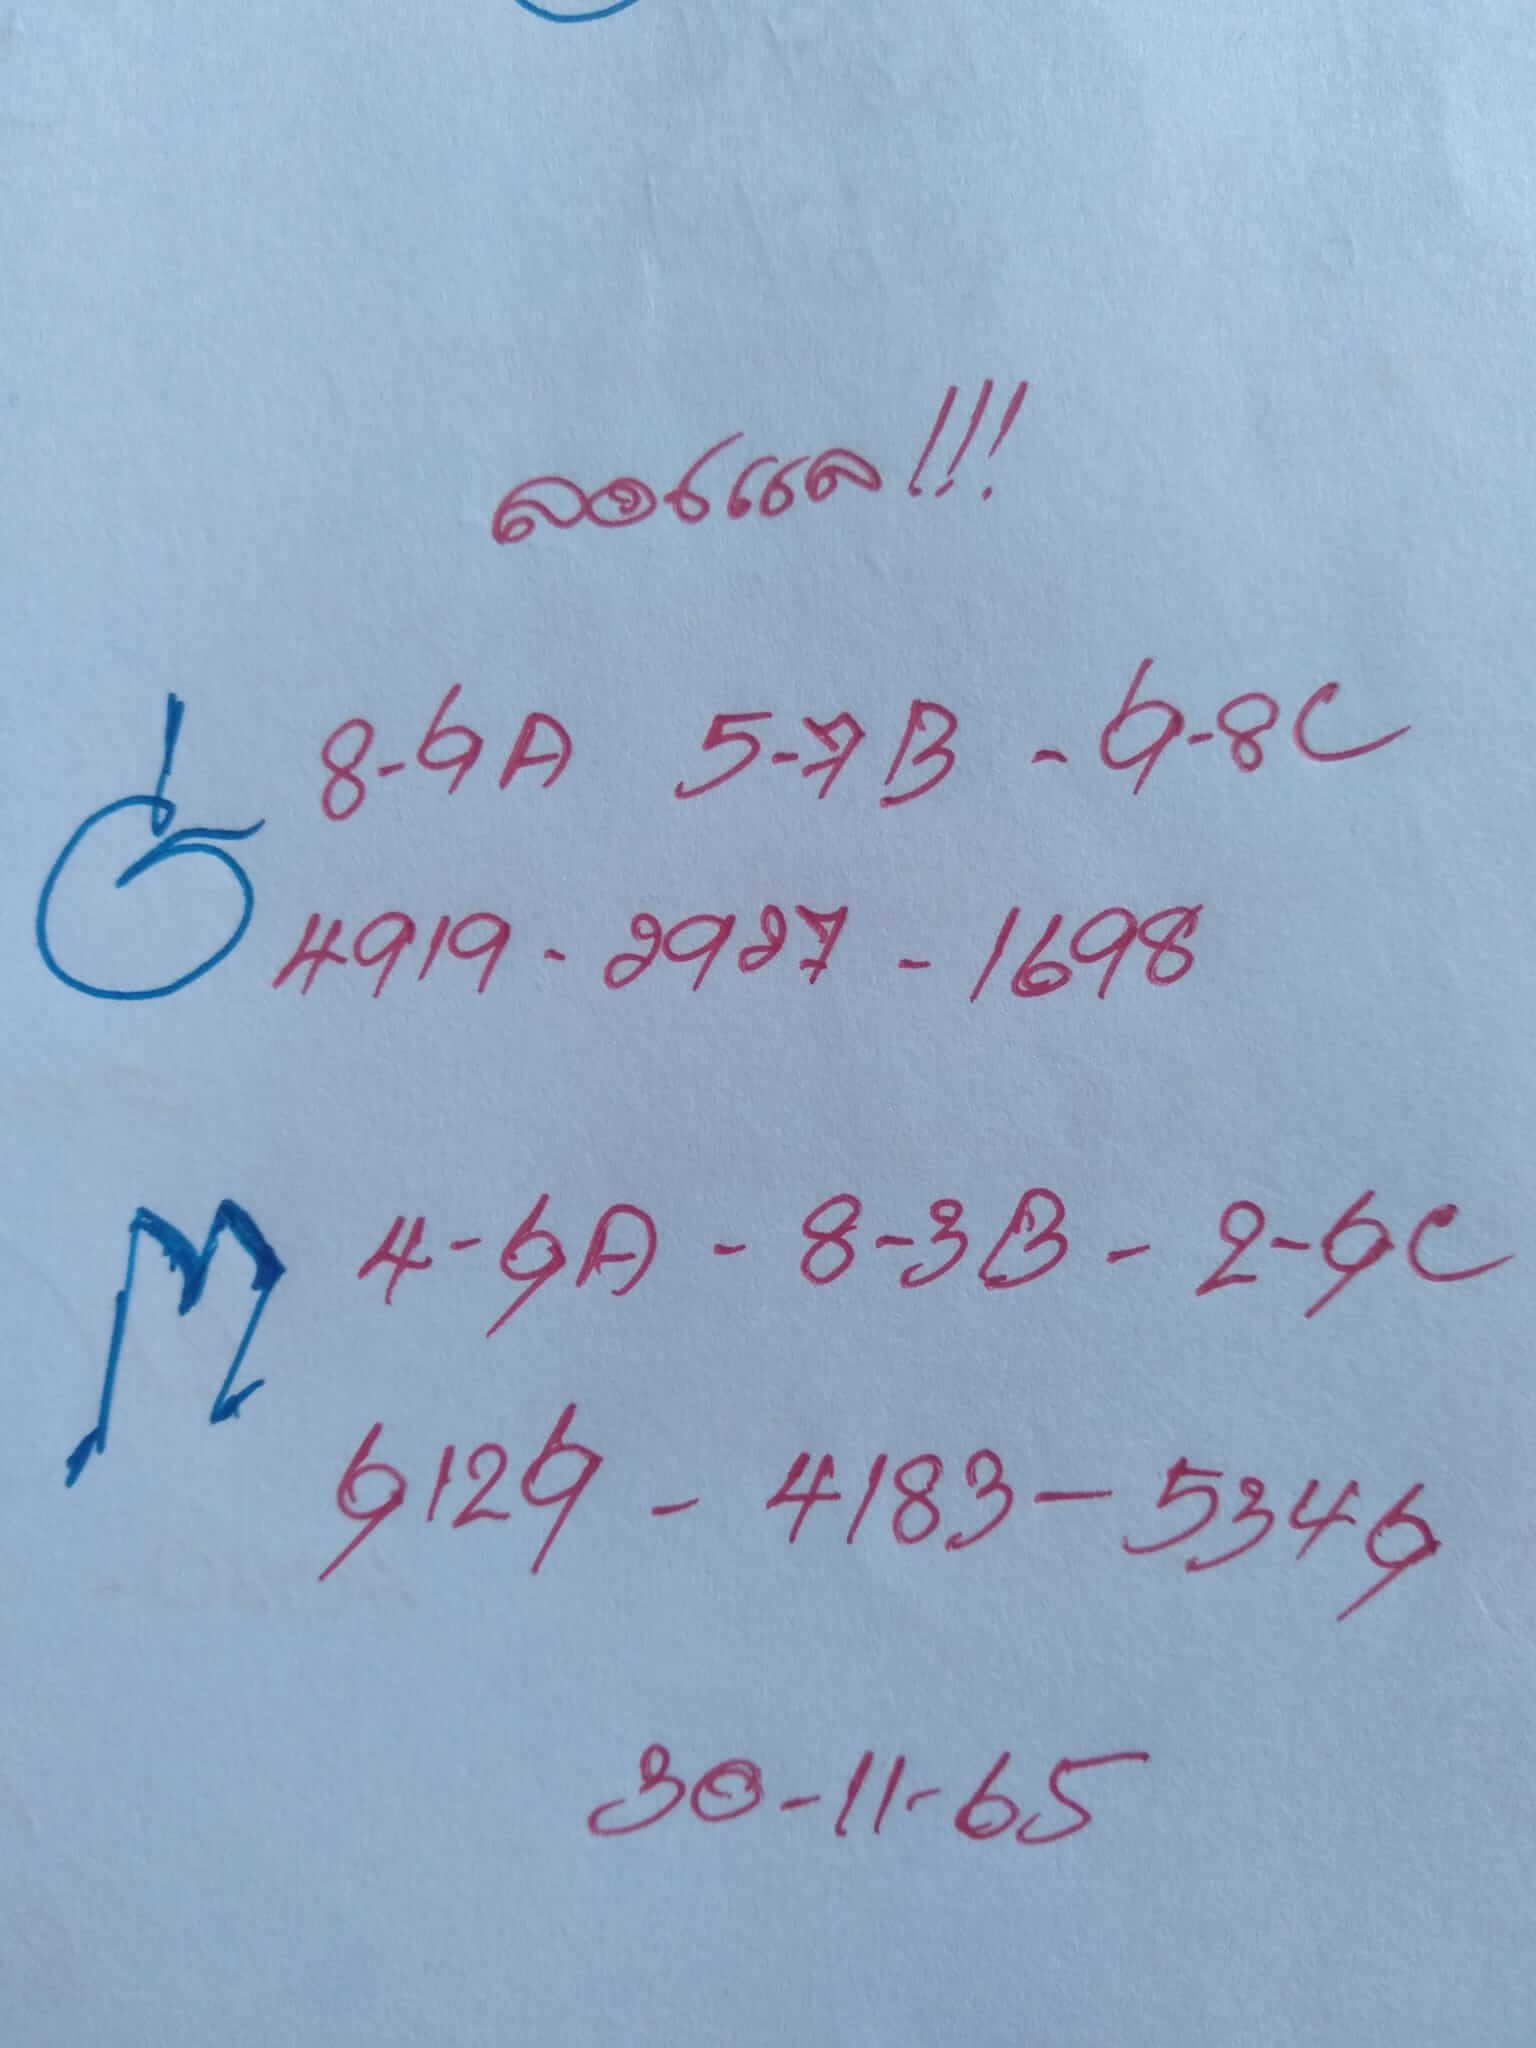 ลอรแล!!!
8-9A 5-7B - 9-8C
4919 - 2927 - 1698
M 4-6A - 8-3B - 2-6C
6129 - 4183 - 5346
30-11-65